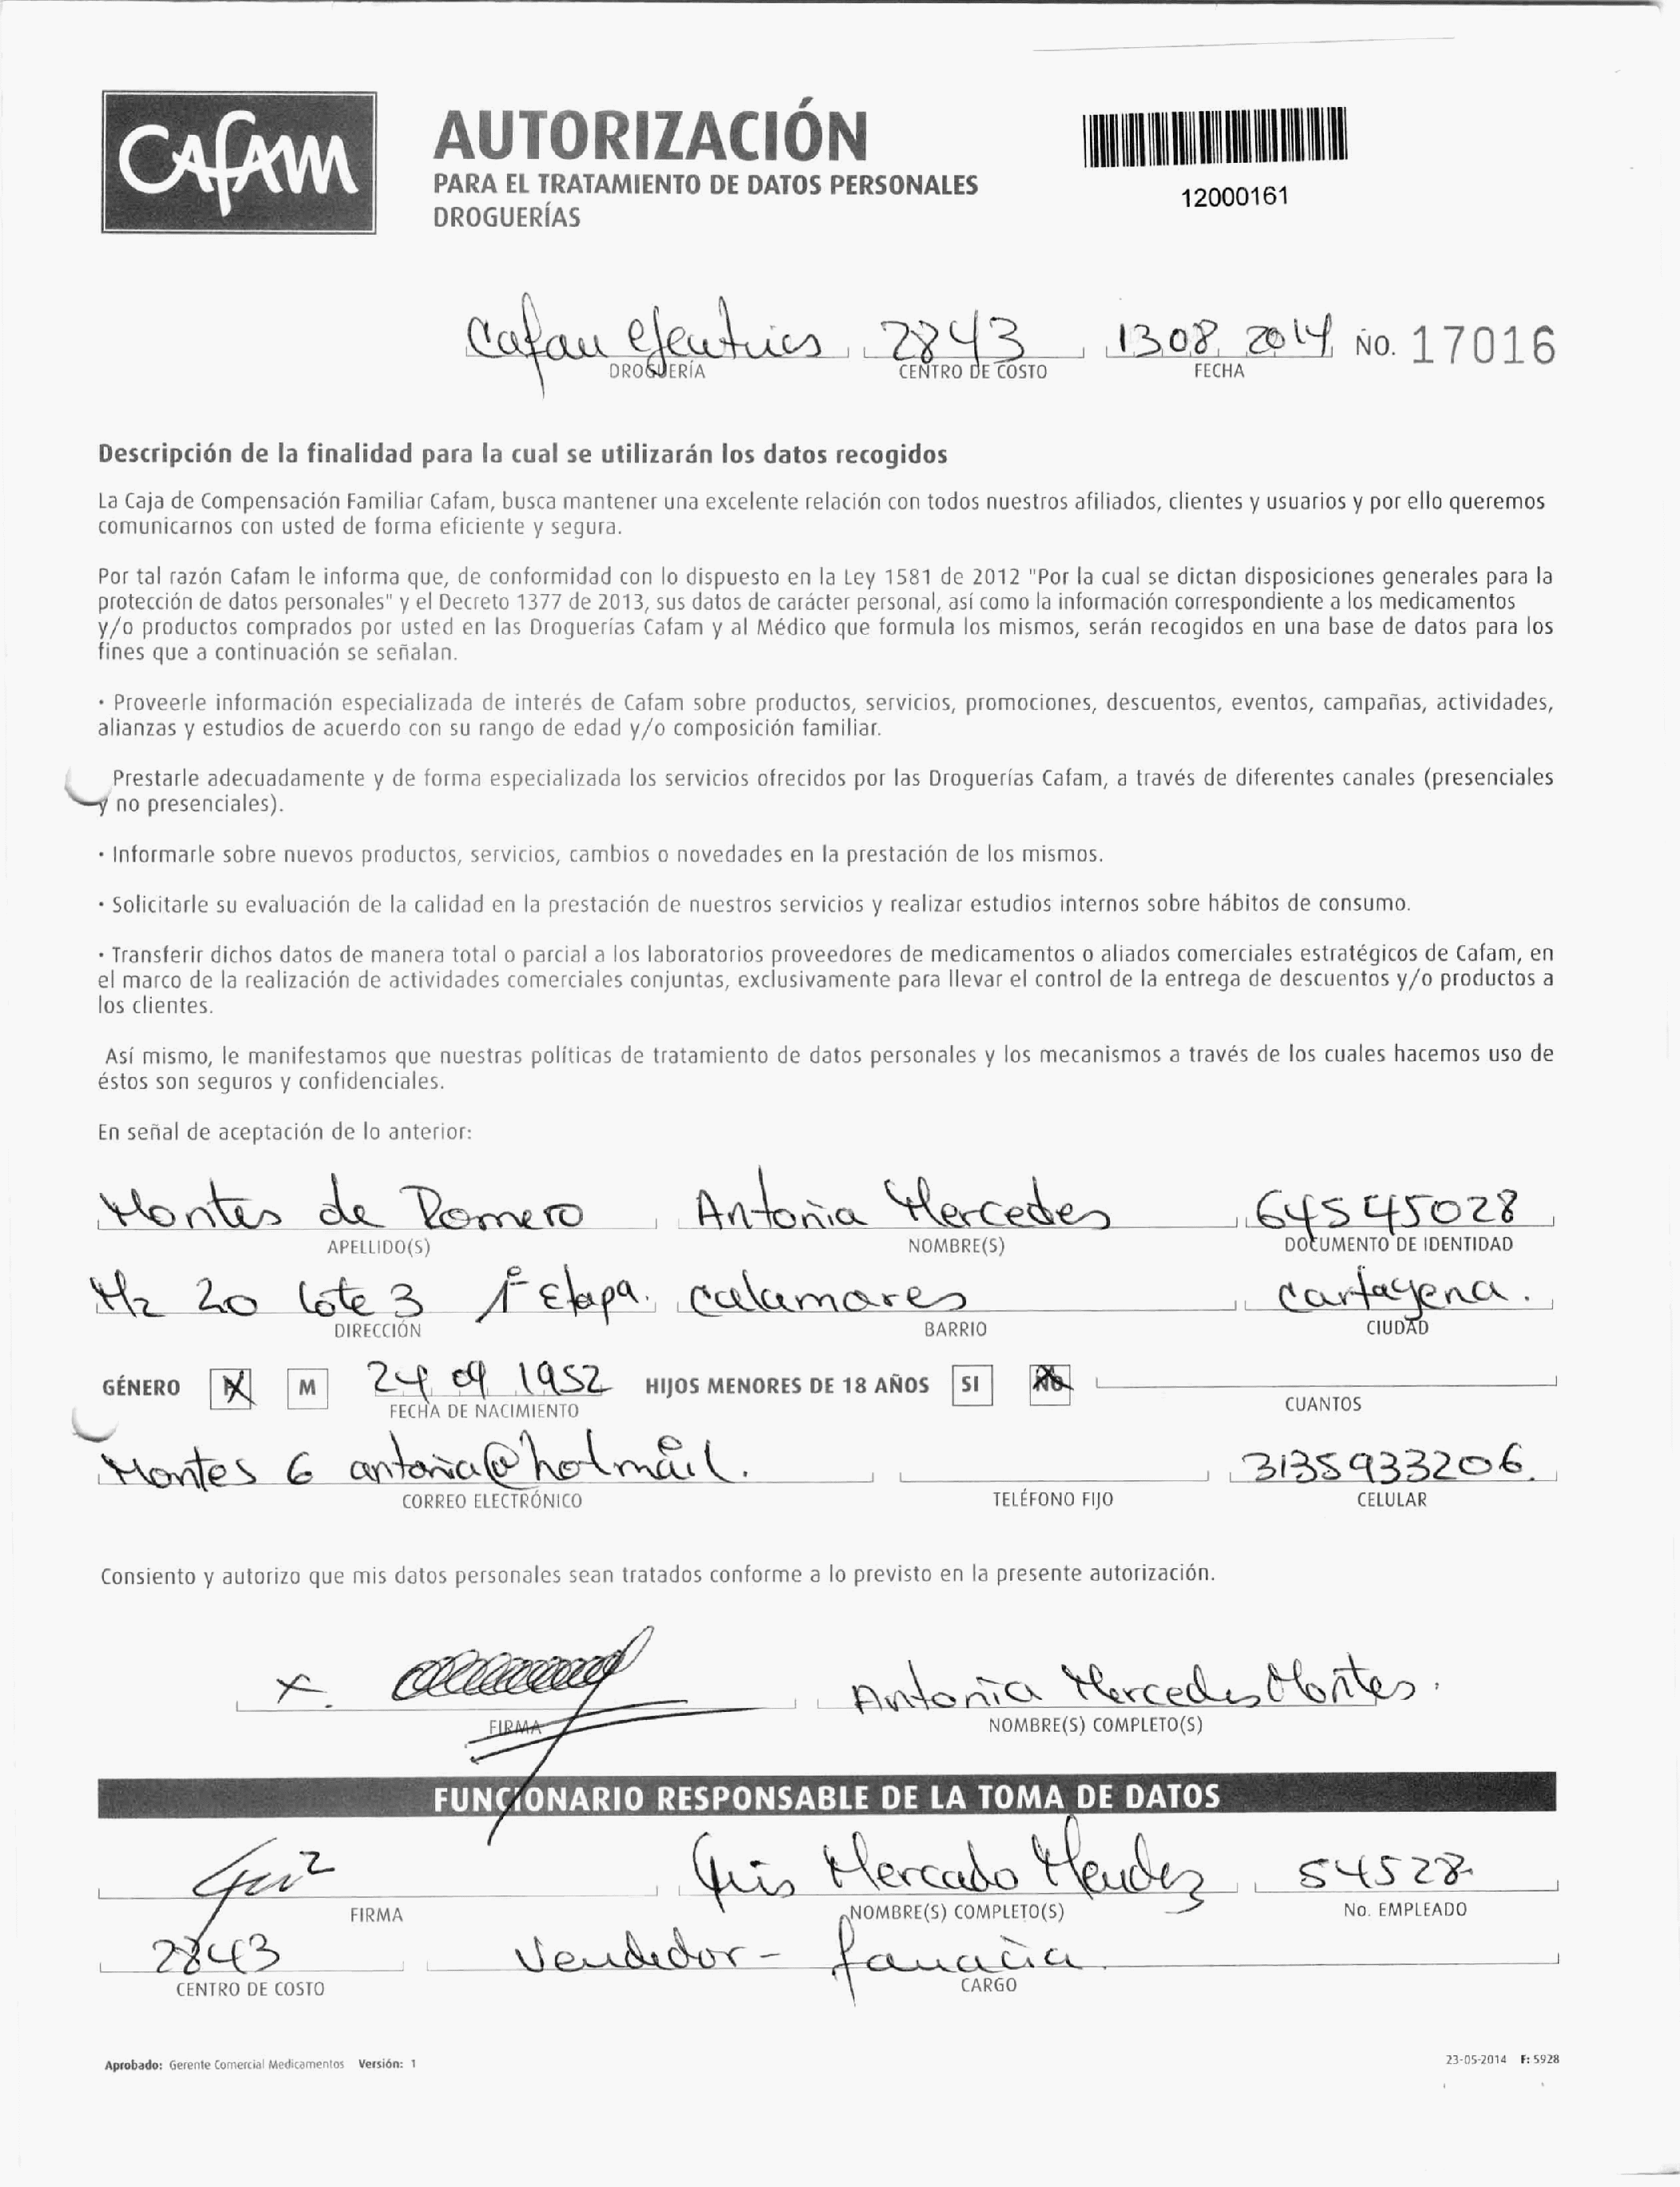 CAfAM
AUTORIZACIÓN
PARA EL TRATAMIENTO DE DATOS PERSONALES
DROGUERÍAS
12000161
Cafam 2843 13 08 2014 No. 17016
DROGUERÍA CENTRO DE COSTO FECHA
Descripción de la finalidad para la cual se utilizarán los datos recogidos
La Caja de Compensación Familiar Cafam, busca mantener una excelente relación con todos nuestros afiliados, clientes y usuarios y por ello queremos
comunicarnos con usted de forma eficiente y segura.
Por tal razón Cafam le informa que, de conformidad con lo dispuesto en la Ley 1581 de 2012 "Por la cual se dictan disposiciones generales para la
protección de datos personales" y el Decreto 1377 de 2013, sus datos de carácter personal, así como la información correspondiente a los medicamentos
y/o productos comprados por usted en las Droguerías Cafam y al Médico que formula los mismos, serán recogidos en una base de datos para los
fines que a continuación se señalan.
· Proveerle información especializada de interés de Cafam sobre productos, servicios, promociones, descuentos, eventos, campañas, actividades,
alianzas y estudios de acuerdo con su rango de edad y/o composición familiar.
Prestarle adecuadamente y de forma especializada los servicios ofrecidos por las Droguerías Cafam, a través de diferentes canales (presenciales
y no presenciales).
· Informarle sobre nuevos productos, servicios, cambios o novedades en la prestación de los mismos.
· Solicitarle su evaluación de la calidad en la prestación de nuestros servicios y realizar estudios internos sobre hábitos de consumo.
· Transferir dichos datos de manera total o parcial a los laboratorios proveedores de medicamentos o aliados comerciales estratégicos de Cafam, en
el marco de la realización de actividades comerciales conjuntas, exclusivamente para llevar el control de la entrega de descuentos y/o productos a
los clientes.
Así mismo, le manifestamos que nuestras políticas de tratamiento de datos personales y los mecanismos a través de los cuales hacemos uso de
éstos son seguros y confidenciales.
En señal de aceptación de lo anterior:
Montes de Romero Antonia Mercedes 64545028
APELLIDO(S) NOMBRE(S) DOCUMENTO DE IDENTIDAD
Mz 20 lote 3 1ª Etapa. Calamares Cartagena.
DIRECCIÓN BARRIO CIUDAD
GÉNERO X M 24 09 1952 HIJOS MENORES DE 18 AÑOS SI NO
FECHA DE NACIMIENTO CUANTOS
Montes 6 antonia@hotmail. 3135933206.
CORREO ELECTRÓNICO TELÉFONO FIJO CELULAR
Consiento y autorizo que mis datos personales sean tratados conforme a lo previsto en la presente autorización.
x. Antonia Mercedes Montes.
FIRMA NOMBRE(S) COMPLETO(S)
FUNCIONARIO RESPONSABLE DE LA TOMA DE DATOS
Mercado Mendez 54528
FIRMA NOMBRE(S) COMPLETO(S) No. EMPLEADO
2843 Vendedor-
CENTRO DE COSTO CARGO
Aprobado: Gerente Comercial Medicamentos Versión: 1 23-05-2014 F: 5928